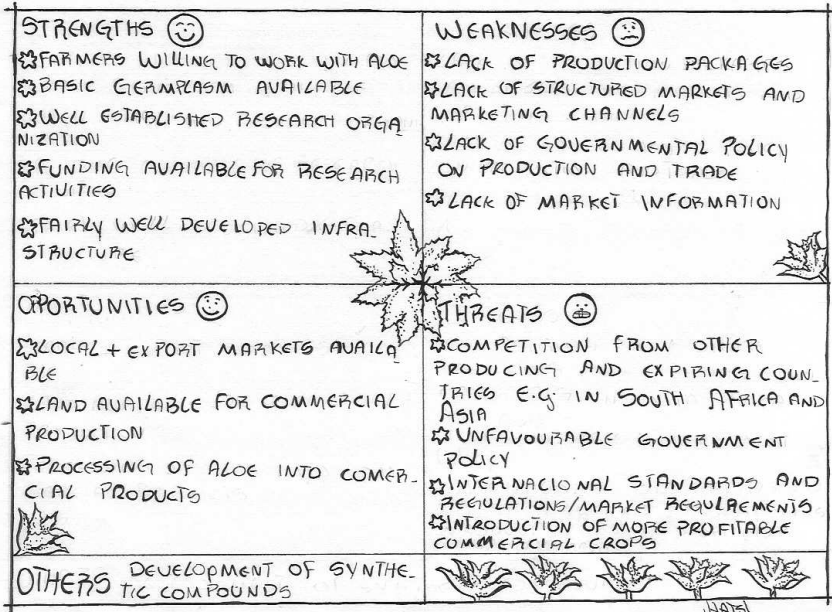 STRENGTHS
FARMERS WILLING TO WORK WITH ALOE
BASIC GERMPLASM AVAILABLE
WELL ESTABLISHED RESEARCH ORGA
NIZATION
FUNDING AVAILABLE FOR RESEARCH
ACTIVITIES
FAIRLY WELL DEVELOPED INFRA-
STRUCTURE
WEAKNESSES
LACK OF PRODUCTION PACKAGES
LACK OF STRUCTURED MARKETS AND
MARKETING CHANNELS
LACK OF GOVERNMENTAL POLICY
ON PRODUCTION AND TRADE
LACK OF MARKET INFORMATION
OPPORTUNITIES
LOCAL + EXPORT MARKETS AVAILA
BLE
LAND AVAILABLE FOR COMMERCIAL
PRODUCTION
PROCESSING OF ALOE INTO COMER-
CIAL PRODUCTS
THREATS
COMPETITION FROM OTHER
PRODUCING AND EXPIRING COUN-
TRIES E.G. IN SOUTH AFRICA AND
ASIA
UNFAVOURABLE GOVERNMENT
POLICY
INTERNACIONAL STANDARDS AND
REGULATIONS/MARKET REQUIREMENTS
INTRODUCTION OF MORE PROFITABLE
COMMERCIAL CROPS
OTHERS DEVELOPMENT OF SYNTHE-
TIC COMPOUNDS